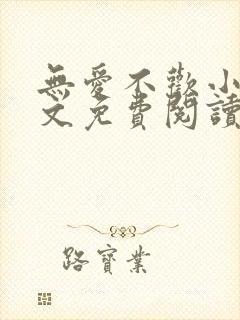 無愛不歡小
文免費閱讀
路寶業